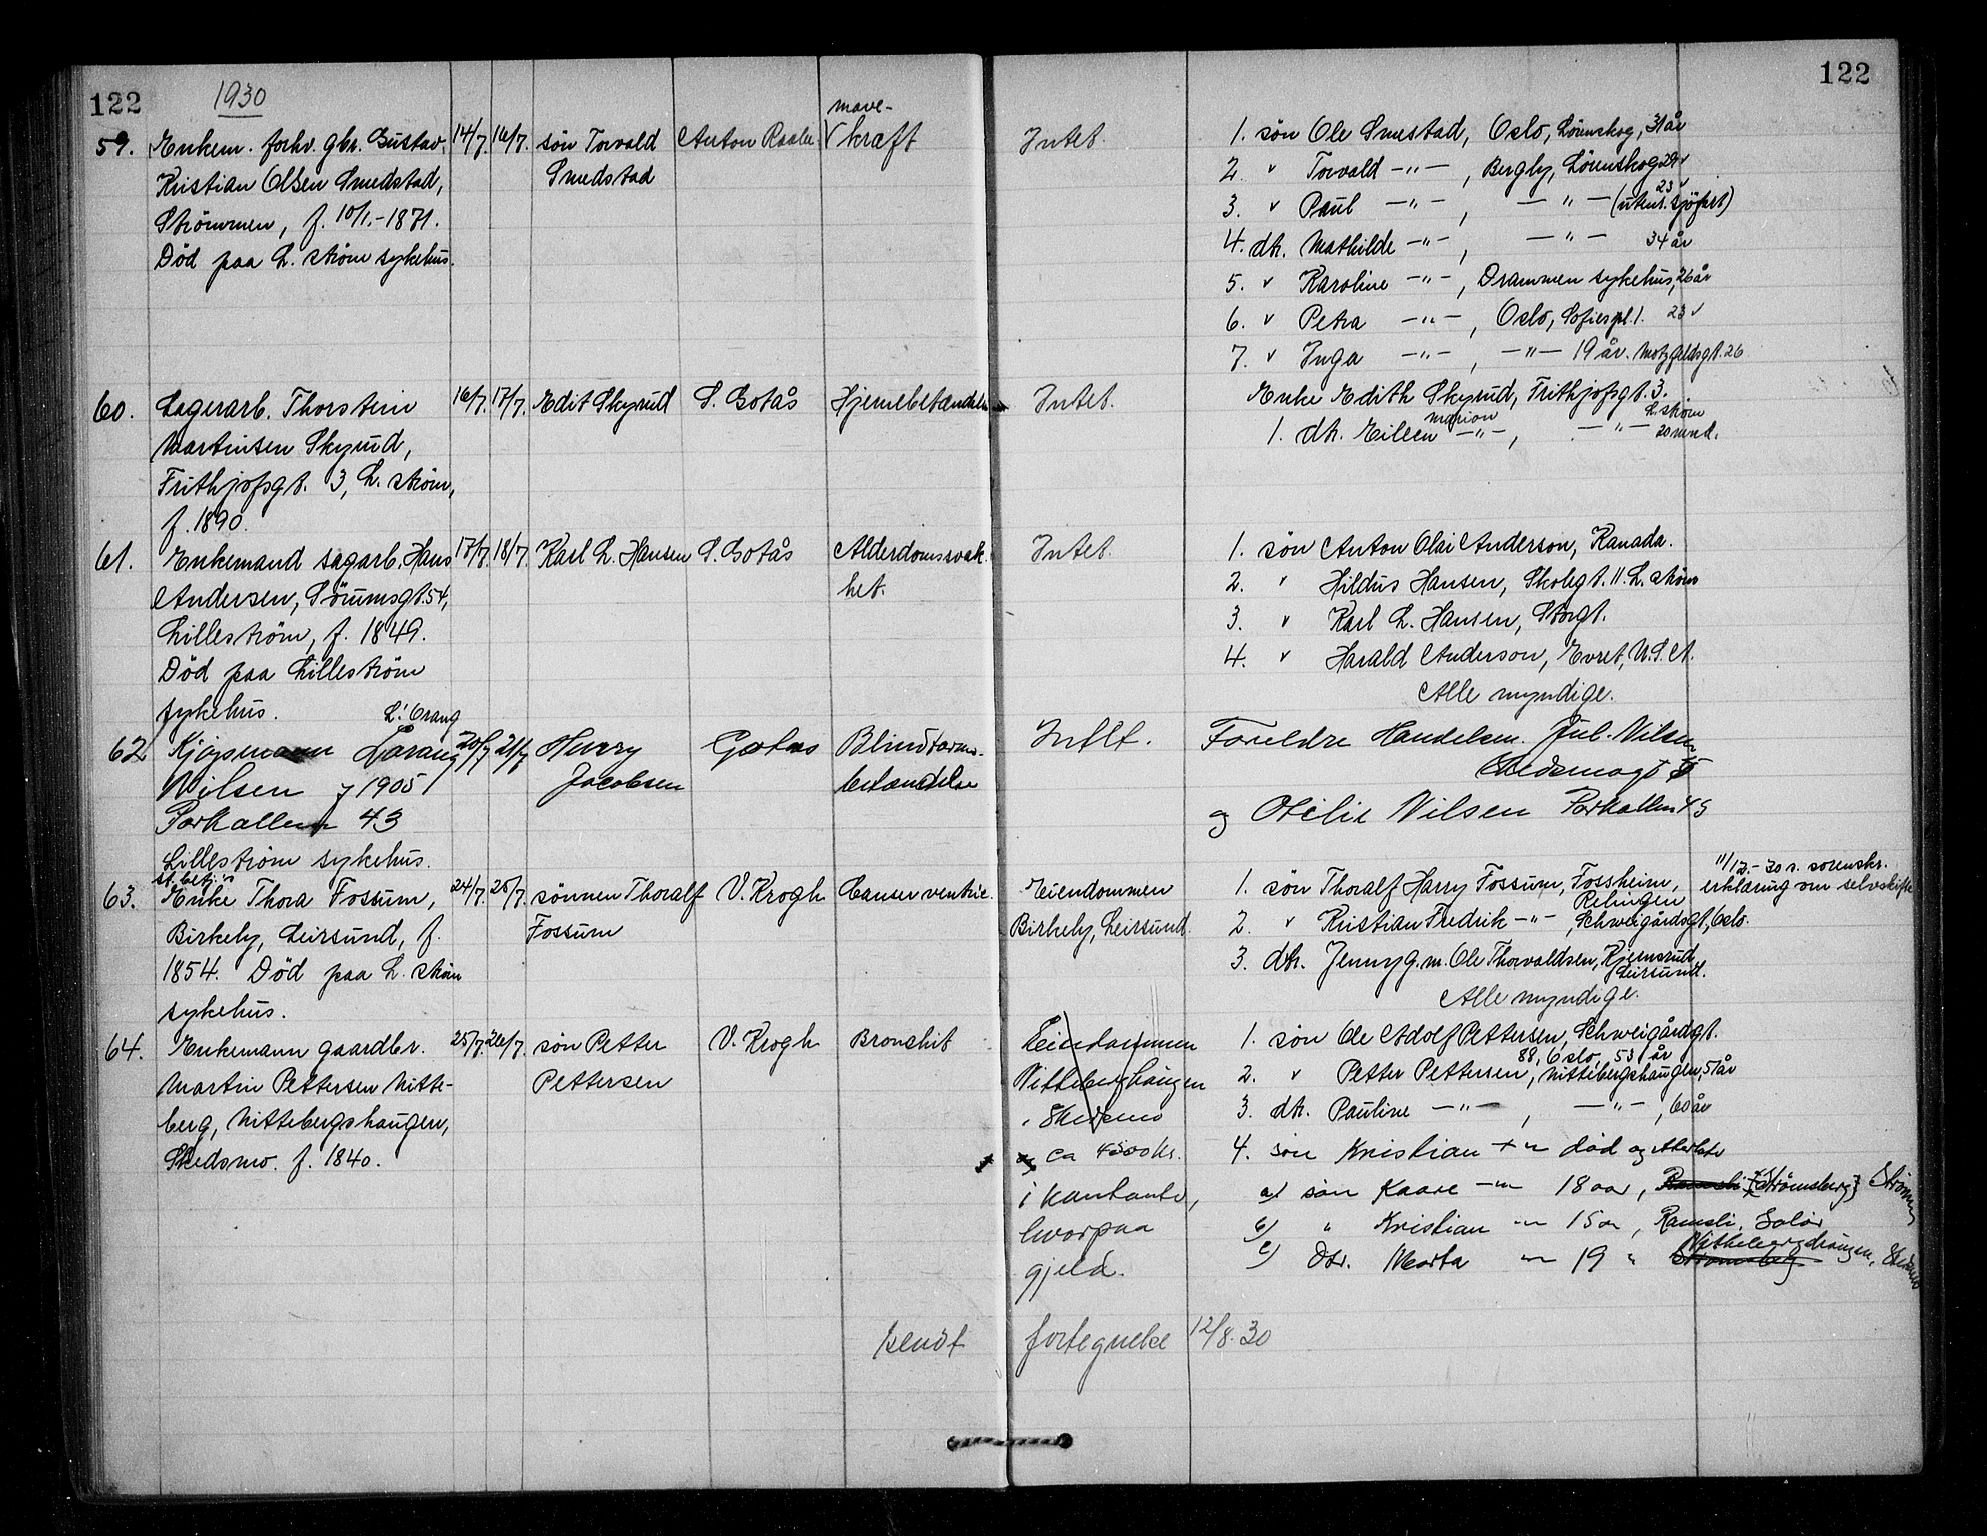 122
1930
122
59. Enkem. forhv. gbr. Gustav 14/7. 16/7. søn Torvald Anton Raabe mave-
Kristian Olsen Smedstad, Smedstad kraft
Strømmen, f. 10/1.-1871.
Død paa L. strøm sykehus.
Intet.
1. søn Ole Smestad, Oslo, Lörenskog, 31 år
2. " Torvald -"-, Bergly, Lörenskog 29 "
3. " Paul -"-, -"- (utenr. sjöfart) 23 "
4. dtr. Mathilde -"-, -"- 34 år
5. " Karoline -"-, Drammen sykehus, 26 år
6. " Petra -"-, Oslo, Sofiespl. 1. 23 "
7. " Inga -"-, -"- 19 år. Motzfeldsgt. 26
60. Lagerarb. Thorstein 16/7. 17/7. Edit Skyrud S. Gotås Hjernebetændelse
Martinsen Skyrud,
Frithjofsgt. 3, L. strøm,
f. 1890.
Intet.
Enke Edith Skyrud, Frithjofsgt. 3.
L. strøm
1. dtr. Eileen Marion -"-, -"- 20 mnd.
61. Enkemand sagarb. Hans 17/7. 18/7. Karl L. Hansen S. Gotås Alderdomssvak-
Andersen, Sörumsgt. 54, het.
Lilleström, f. 1849.
Død paa Lilleström
sykehus.
Intet.
1. søn Anton Olai Anderson, Kanada.
2. " Hildus Hansen, Skolegt. 11. L. strøm
3. " Karl L. Hansen, Storgt.
4. " Harald Anderson, Evret, U.S.A.
Alle myndige.
L'Orang
62 Kjøpmann Lorang 20/7 21/7 Henry Gotaas Blindtarms-
Nilsen f 1905 Jacobsen betændelse
Parkalleen 43
Lillestrøm sykehus.
Intet.
Foreldre Handelsm. Jul. Nilsen
Skedsmogt 5
og Otilie Nilsen Parkallen 45
63. Enke Thora Fossum, 24/7. 25/7. sønnen Thoralf V. Krogh Canser ventric.
Birkely, Leirsund, f. Fossum
1854. Død paa L. strøm
sykehus.
Eiendommen
Birkely, Leirsund.
1. søn Thoralf Harry Fossum, Fossheim,
Relingen
2. " Kristian Fredrik -"-, Schweigårdsgt, Oslo.
3. dtr. Jenny g. m. Ole Thorvaldsen, Kjemsrud,
Leirsund.
Alle myndige.
11/12-30 s. sorenskr.
erklæring om selvskifte
64. Enkemann gaardbr. 25/7. 26/7. søn Petter V. Krogh Bronchit
Martin Pettersen Nitte- Pettersen
berg, Nittebergshaugen,
Skedsmo. f. 1840.
Eiendommen
Nitteberghaugen
i Skedsmo
ca 4500 kr.
i kontanter,
hvorpaa
gjeld.
1. søn Ole Adolf Pettersen, Schweigårdsgt.
88, Oslo, 53 år
2. " Petter Pettersen, Nittebergshaugen, 57 år
3. dtr. Pauline -"-, -"-, 60 år
4. søn Kristian -"- død og etterlate
a) søn Kaare -"- 18 aar, Ramsli Strømsberg, Strømmen
b) " Kristian -"- 15 aa, Ramsli, Solør
c) Dtr. Marta -"- 19 " Strømsberg Nittebergshaugen, Skedsmo
sendt fortegnelse 12/8. 30